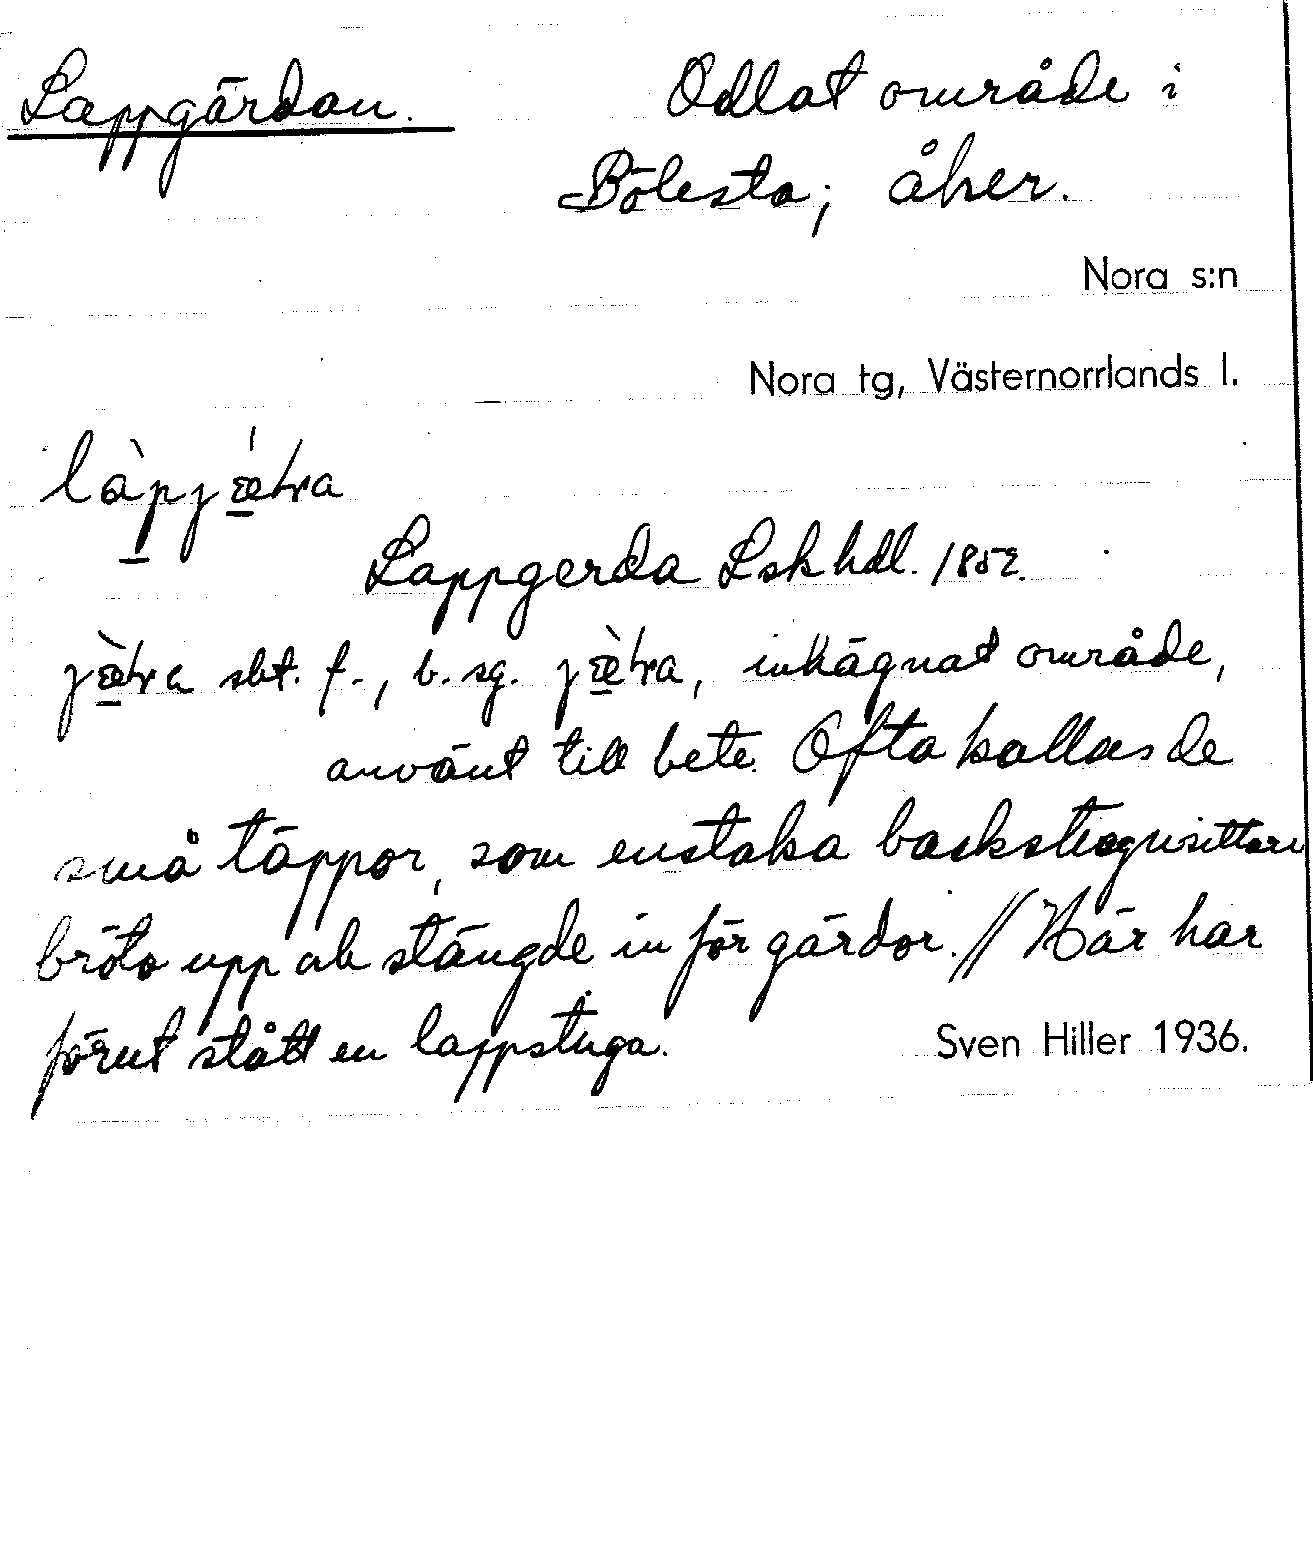 Lappgärdan. Odlat område i
Bölesta; åker.
Nora s:n
Nora tg, Västernorrlands l.
Lappgerda Lskhdl. 1852.
sbt. f., b. sg. inhägnat område,
använt till bete. Ofta kallas de
små täppor, som enstaka backstugusittare
bröto upp ock stängde in för gärdor. // Här har
förut stått en lappstuga. Sven Hiller 1936.